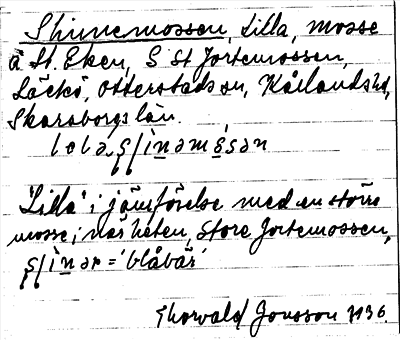 Skinnemossen, Lilla, mosse
å St. Eken, S St Jortemossen,
Läckö, Otterstads sn, Kållands hd,
Skaraborgs län.
"Lilla" i jämförelse med en större
mosse i närheten, Store Jortemossen,
= 'blåbär'
Thorwald Jonsson 1936.